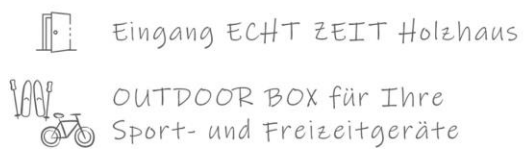 Eingang ECHT ZEIT Holzhaus
OUTDOOR BOX für Ihre
Sport- und Freizeitgeräte